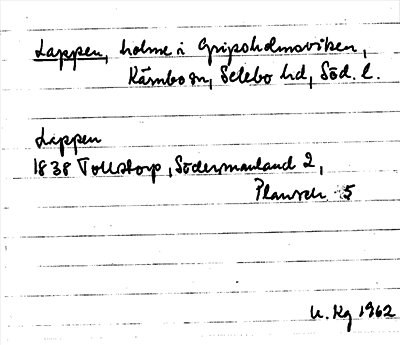 Lappen, holme i Gripsholmsviken,
Kärnbo sn, Selebo hd, Söd. l.
Lappen
1838 Tollstorp, Södermanland 2,
Plansch 5
U. Kg 1962